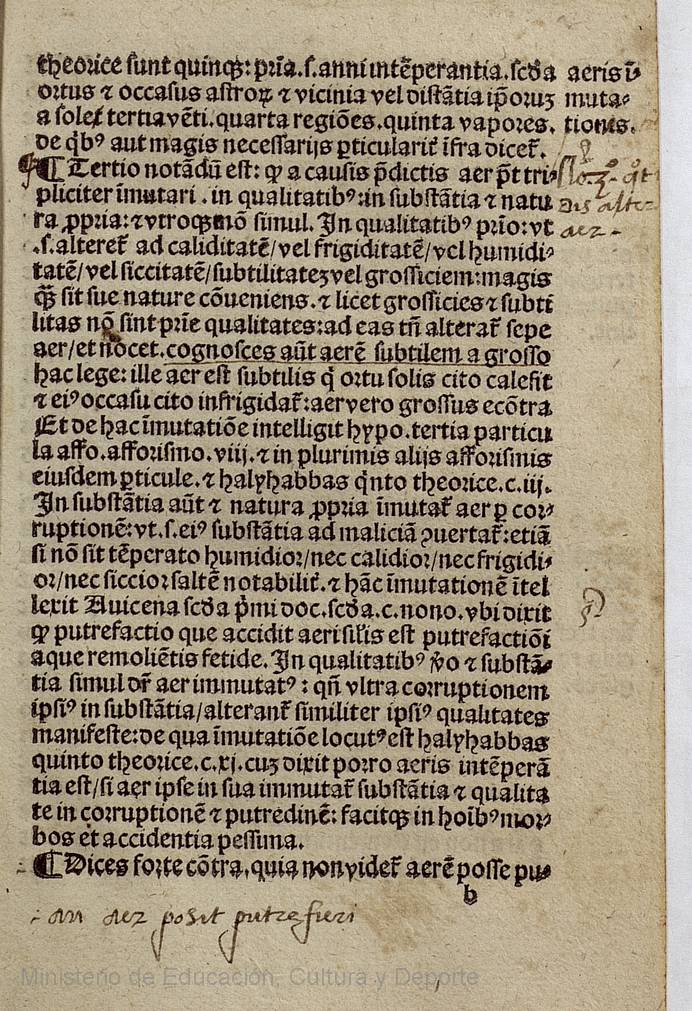 theorice sunt quinqꝫ: pr̃ia.ſ.anni intẽperantia.ſcḋa aeris ĩ
ortus ⁊ occaſus aſtroꝝ ⁊ vicinia vel diſtãtia ip̃oruꝫ muta-
a ſole⁊ tertia vẽti.quarta regiões.quinta vapores. tiones.
de q̇bꝰ aut magis neceſſarijs ꝑticularit̃ ĩfra dicet̃.
¶ Tertio notãdũ eſt: ꝙ a cauſis p̃dictis aer põt tri⸗
pliciter ĩmutari . in qualitatibꝰ:in ſubſtãtia ⁊ natu
ra ꝓpria:⁊ vtroqꝫ mõ ſimul. In qualitatibꝰ prĩo:vt
.ſ.alteret̃ ad caliditatẽ/vel frigiditatẽ/vel humidi⸗
tatẽ/vel ſiccitatẽ/ſubtilitateꝫ vel groſſiciem:magis
q̃ꝫ ſit ſue nature cõueniens.⁊ licet groſſicies ⁊ ſubti
litas nõ ſint prĩe qualitates:ad eas tñ alterat̃ ſepe
aer/et nocet.cognoſces aũt aerẽ ſubtilem a groſſo
hac lege: ille aer eſt ſubtilis q̇ ortu ſolis cito calefit
⁊ eiꝰ occaſu cito infrigidat̃:aer vero groſſus ecõtra
Et de hac ĩmutatiõe intelligit hypo.tertia particu
la affo.afforiſmo.viij.⁊ in plurimis alijs afforiſmis
eiuſdem ꝑticule.⁊ halyhabbas q̇nto theorice.c.iij.
In ſubſtãtia aũt ⁊ natura ꝓpria ĩmutat̃ aer ꝑ cor⸗
ruptionẽ:vt.ſ.eiꝰ ſubſtãtia ad maliciã ꝯuertat̃:etiã
ſi nõ ſit tẽperato humidior/nec calidior/nec frigidi⸗
or/nec ſiccior ſaltẽ notabilit̃.⁊ hãc ĩmutationẽ ĩtel
lexit Auicena ſcḋa p̃mi doc.ſcḋa.c.nono.vbi dixit
ꝙ putrefactio que accidit aeri ſil̃is eſt putrefactiõi
aque remoliẽtis fetide. In qualitatibꝰ ṽo ⁊ ſubſtã⸗
tia ſimul dr̃ aer immutatꝰ : qñ vltra corruptionem
ipſiꝰ in ſubſtãtia/alterant̃ ſimiliter ipſiꝰ qualitates
manifeſte:de qua ĩmutatiõe locutꝰ eſt halyhabbas
quinto theorice.c.xj.cuꝫ dixit porro aeris intẽperã
tia eſt/ſi aer ipſe in ſua immutat̃ ſubſtãtia ⁊ qualita
te in corruptionẽ ⁊ putredinẽ: facitqꝫ in hoĩbꝰ mor⸗
bos et accidentia peſſima.
¶ Dices forte cõtra.quia non videt̃ aerẽ poſſe pu⸗
b
an aer posit putrefieri
Ministerio de Educación, Cultura y Deporte